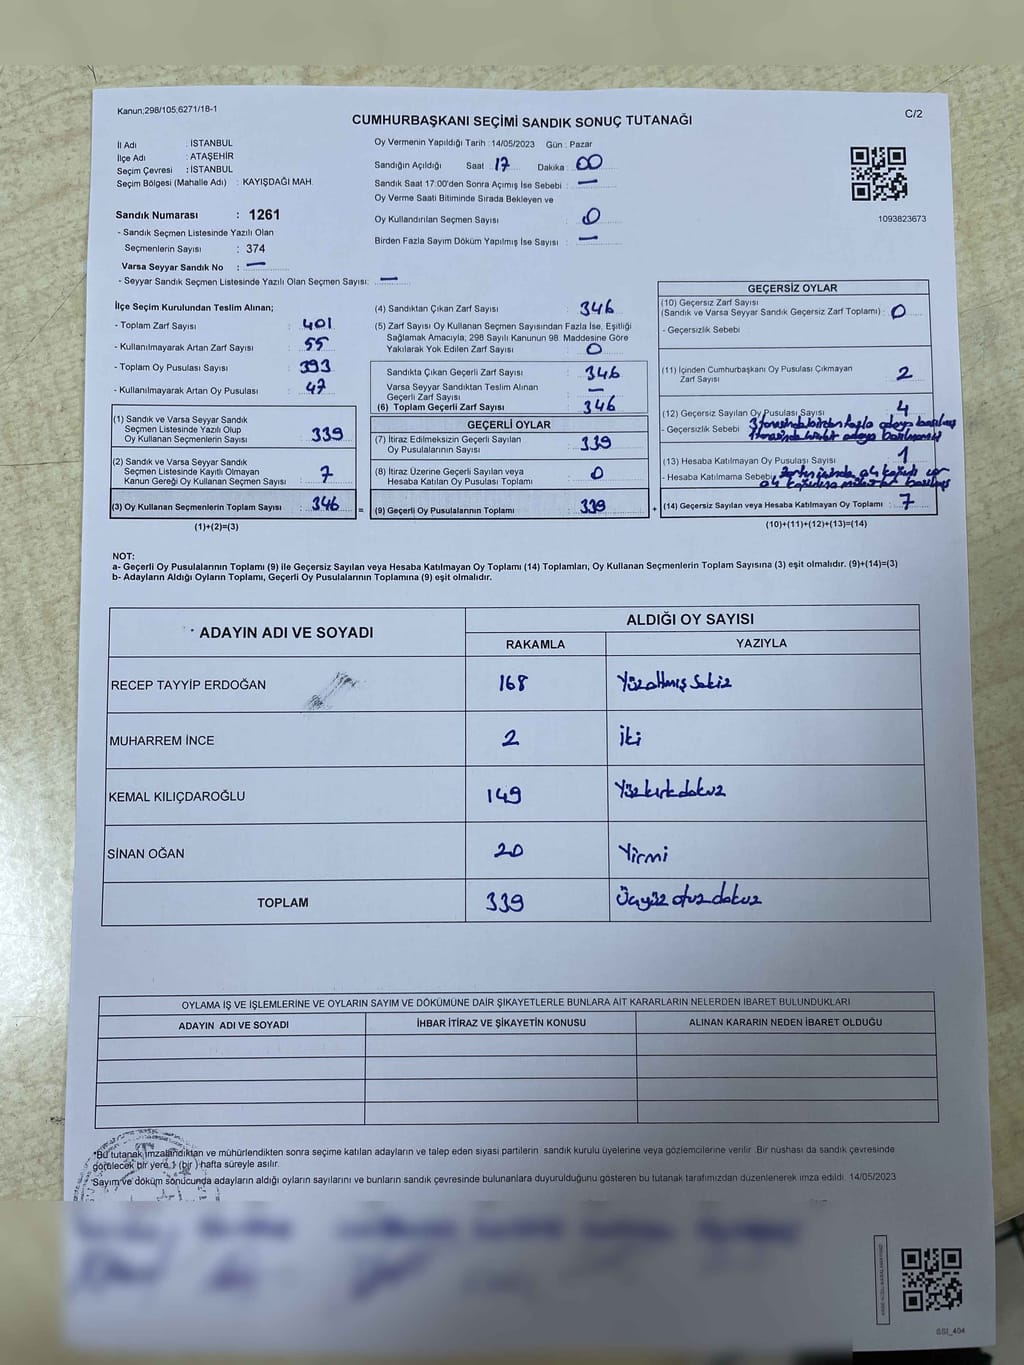 Kanun;298/105,6271/18-1
C/2
CUMHURBAŞKANI SEÇİMİ SANDIK SONUÇ TUTANAĞI
İl Adı : İSTANBUL
İlçe Adı : ATAŞEHİR
Seçim Çevresi : İSTANBUL
Seçim Bölgesi (Mahalle Adı) : KAYIŞDAĞI MAH.
Sandık Numarası : 1261
- Sandık Seçmen Listesinde Yazılı Olan
Seçmenlerin Sayısı : 374
Varsa Seyyar Sandık No : —
- Seyyar Sandık Seçmen Listesinde Yazılı Olan Seçmen Sayısı: —
Oy Vermenin Yapıldığı Tarih :14/05/2023 Gün : Pazar
Sandığın Açıldığı Saat : 17 Dakika : 00
Sandık Saat 17:00'den Sonra Açımış İse Sebebi : —
Oy Verme Saati Bitiminde Sırada Bekleyen ve
Oy Kullandırılan Seçmen Sayısı : 0
Birden Fazla Sayım Döküm Yapılmış İse Sayısı : —
1093823673
İlçe Seçim Kurulundan Teslim Alınan;
- Toplam Zarf Sayısı : 401
- Kullanılmayarak Artan Zarf Sayısı : 55
- Toplam Oy Pusulası Sayısı : 393
- Kullanılmayarak Artan Oy Pusulası : 47
(1) Sandık ve Varsa Seyyar Sandık
Seçmen Listesinde Yazılı Olup
Oy Kullanan Seçmenlerin Sayısı : 339
(2) Sandık ve Varsa Seyyar Sandık
Seçmen Listesinde Kayıtlı Olmayan
Kanun Gereği Oy Kullanan Seçmen Sayısı : 7
(3) Oy Kullanan Seçmenlerin Toplam Sayısı : 346 =
(1)+(2)=(3)
(4) Sandıktan Çıkan Zarf Sayısı : 346
(5) Zarf Sayısı Oy Kullanan Seçmen Sayısından Fazla İse, Eşitliği
Sağlamak Amacıyla; 298 Sayılı Kanunun 98. Maddesine Göre
Yakılarak Yok Edilen Zarf Sayısı : 0
Sandıkta Çıkan Geçerli Zarf Sayısı : 346
Varsa Seyyar Sandıktan Teslim Alınan
Geçerli Zarf Sayısı : —
(6) Toplam Geçerli Zarf Sayısı : 346
GEÇERLİ OYLAR
(7) İtiraz Edilmeksizin Geçerli Sayılan
Oy Pusulalarının Sayısı : 339
(8) İtiraz Üzerine Geçerli Sayılan veya
Hesaba Katılan Oy Pusulası Toplamı : 0
(9) Geçerli Oy Pusulalarının Toplamı : 339 +
GEÇERSİZ OYLAR
(10) Geçersiz Zarf Sayısı
(Sandık ve Varsa Seyyar Sandık Geçersiz Zarf Toplamı) : 0
- Geçersizlik Sebebi
(11) İçinden Cumhurbaşkanı Oy Pusulası Çıkmayan
Zarf Sayısı : 2
(12) Geçersiz Sayılan Oy Pusulası Sayısı : 4
- Geçersizlik Sebebi : 3 tanesinde birden fazla adaya basılmış
1 tanesinde hiçbir adaya basılmamış
(13) Hesaba Katılmayan Oy Pusulası Sayısı : 1
- Hesaba Katılmama Sebebi : Zarfın içinde a4 kağıdı var
a4 kağıdına mühür basılmış
(14) Geçersiz Sayılan veya Hesaba Katılmayan Oy Toplamı : 7
(10)+(11)+(12)+(13)=(14)
NOT:
a- Geçerli Oy Pusulalarının Toplamı (9) ile Geçersiz Sayılan veya Hesaba Katılmayan Oy Toplamı (14) Toplamları, Oy Kullanan Seçmenlerin Toplam Sayısına (3) eşit olmalıdır. (9)+(14)=(3)
b- Adayların Aldığı Oyların Toplamı, Geçerli Oy Pusulalarının Toplamına (9) eşit olmalıdır.
ADAYIN ADI VE SOYADI
ALDIĞI OY SAYISI
RAKAMLA YAZIYLA
RECEP TAYYİP ERDOĞAN 168 Yüzaltmış Sekiz
MUHARREM İNCE 2 İki
KEMAL KILIÇDAROĞLU 149 Yüzkırkdokuz
SİNAN OĞAN 20 Yirmi
TOPLAM 339 Üçyüz otuz dokuz
OYLAMA İŞ VE İŞLEMLERİNE VE OYLARIN SAYIM VE DÖKÜMÜNE DAİR ŞİKAYETLERLE BUNLARA AİT KARARLARIN NELERDEN İBARET BULUNDUKLARI
ADAYIN ADI VE SOYADI İHBAR İTİRAZ VE ŞİKAYETİN KONUSU ALINAN KARARIN NEDEN İBARET OLDUĞU
*Bu tutanak imzalandıktan ve mühürlendikten sonra seçime katılan adayların ve talep eden siyasi partilerin sandık kurulu üyelerine veya gözlemcilerine verilir. Bir nüshası da sandık çevresinde
görülecek bir yere 1 (bir) hafta süreyle asılır.
*Sayım ve döküm sonucunda adayların aldığı oyların sayılarını ve bunların sandık çevresinde bulunanlara duyurulduğunu gösteren bu tutanak tarafımızdan düzenlenerek imza edildi. 14/05/2023
SSI_404